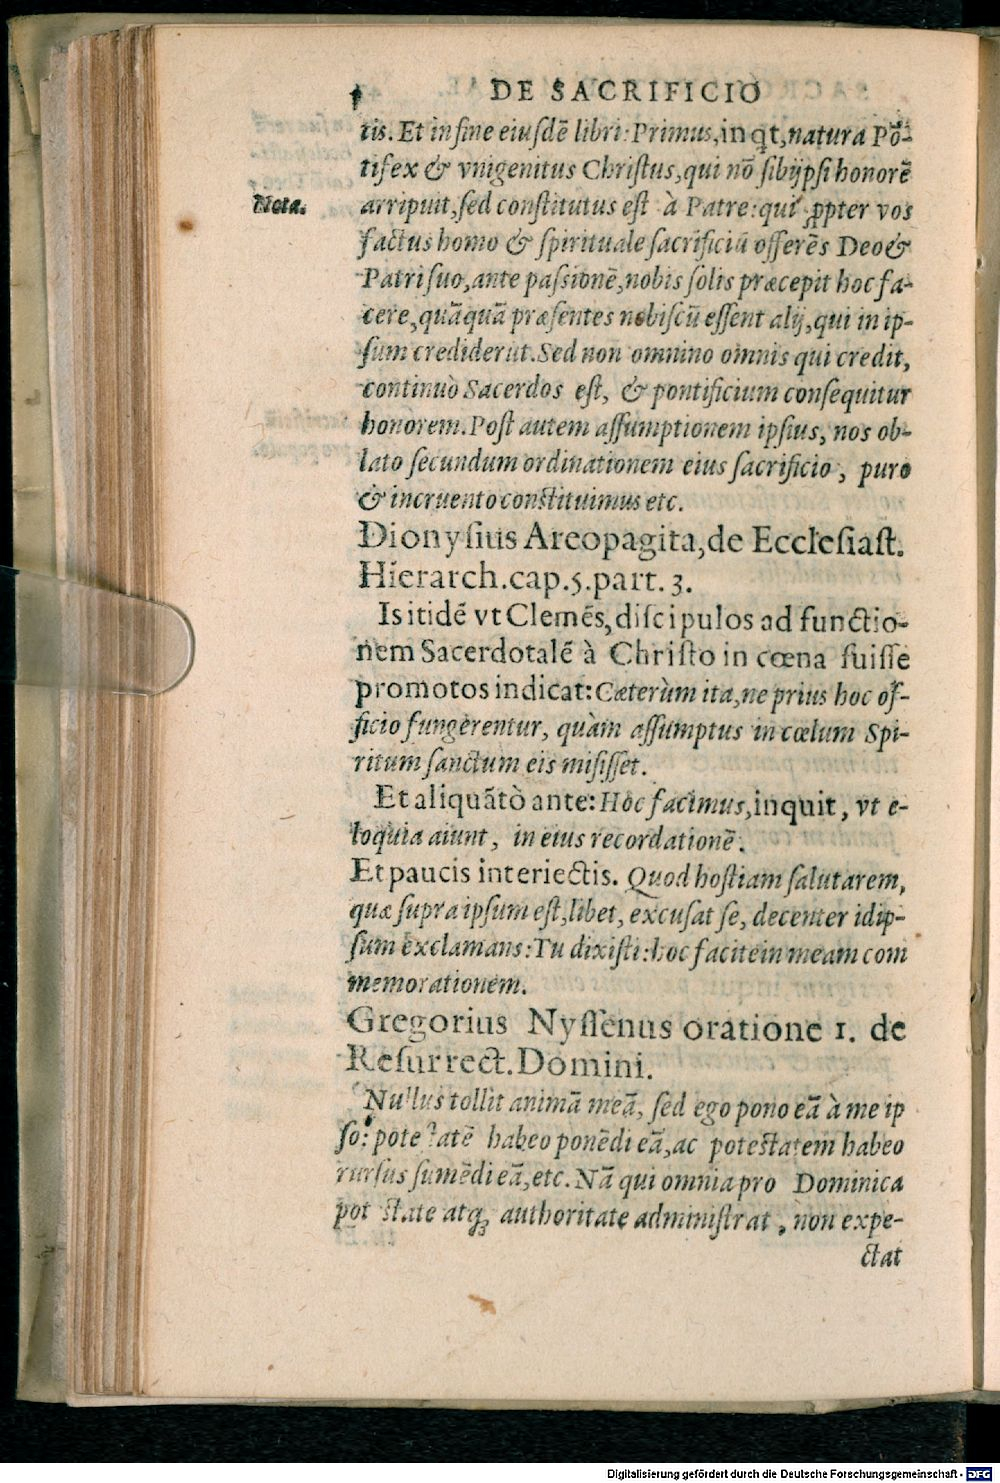 DE SACRIFICIO
tis. Et in fine eiusdē libri: Primus, inqt, natura Pō-
tifex & vnigenitus Christus, qui nō sibijpsi honorē
Nota.
arripuit, sed constitutus est à Patre: qui ꝓpter vos
factus homo & spirituale sacrificiū offerēs Deo &
Patri suo, ante passionē, nobis solis præcepit hoc fa-
cere, quāquā præsentes nobiscū essent alij, qui in ip-
sum crediderūt. Sed non omnino omnis qui credit,
continuò Sacerdos est, & pontificium consequitur
honorem. Post autem assumptionem ipsius, nos ob-
lato secundum ordinationem eius sacrificio, puro
& incruento constituimus etc.
Dionysius Areopagita, de Ecclesiast.
Hierarch. cap. 5. part. 3.
Is itidē vt Clemēs, discipulos ad functio-
nem Sacerdotalē à Christo in cœna fuisse
promotos indicat: Cæterùm ita, ne prius hoc of-
ficio fungerentur, quàm assumptus in cœlum Spi-
ritum sanctum eis misisset.
Et aliquātò ante: Hoc facimus, inquit, vt e-
loquia aiunt, in eius recordationē.
Et paucis interiectis. Quod hostiam salutarem,
quæ supra ipsum est, libet, excusat se, decenter idip-
sum exclamans: Tu dixisti: hoc facite in meam com
memorationem.
Gregorius Nyssenus oratione 1. de
Resurrect. Domini.
Nullus tollit animā meā, sed ego pono eā à me ip
so: potestatē habeo ponēdi eā, ac potestatem habeo
rursus sumēdi eā, etc. Nā qui omnia pro Dominica
potestate atqꝫ authoritate administrat, non expe-
ctat
Digitalisierung gefördert durch die Deutsche Forschungsgemeinschaft - DFG